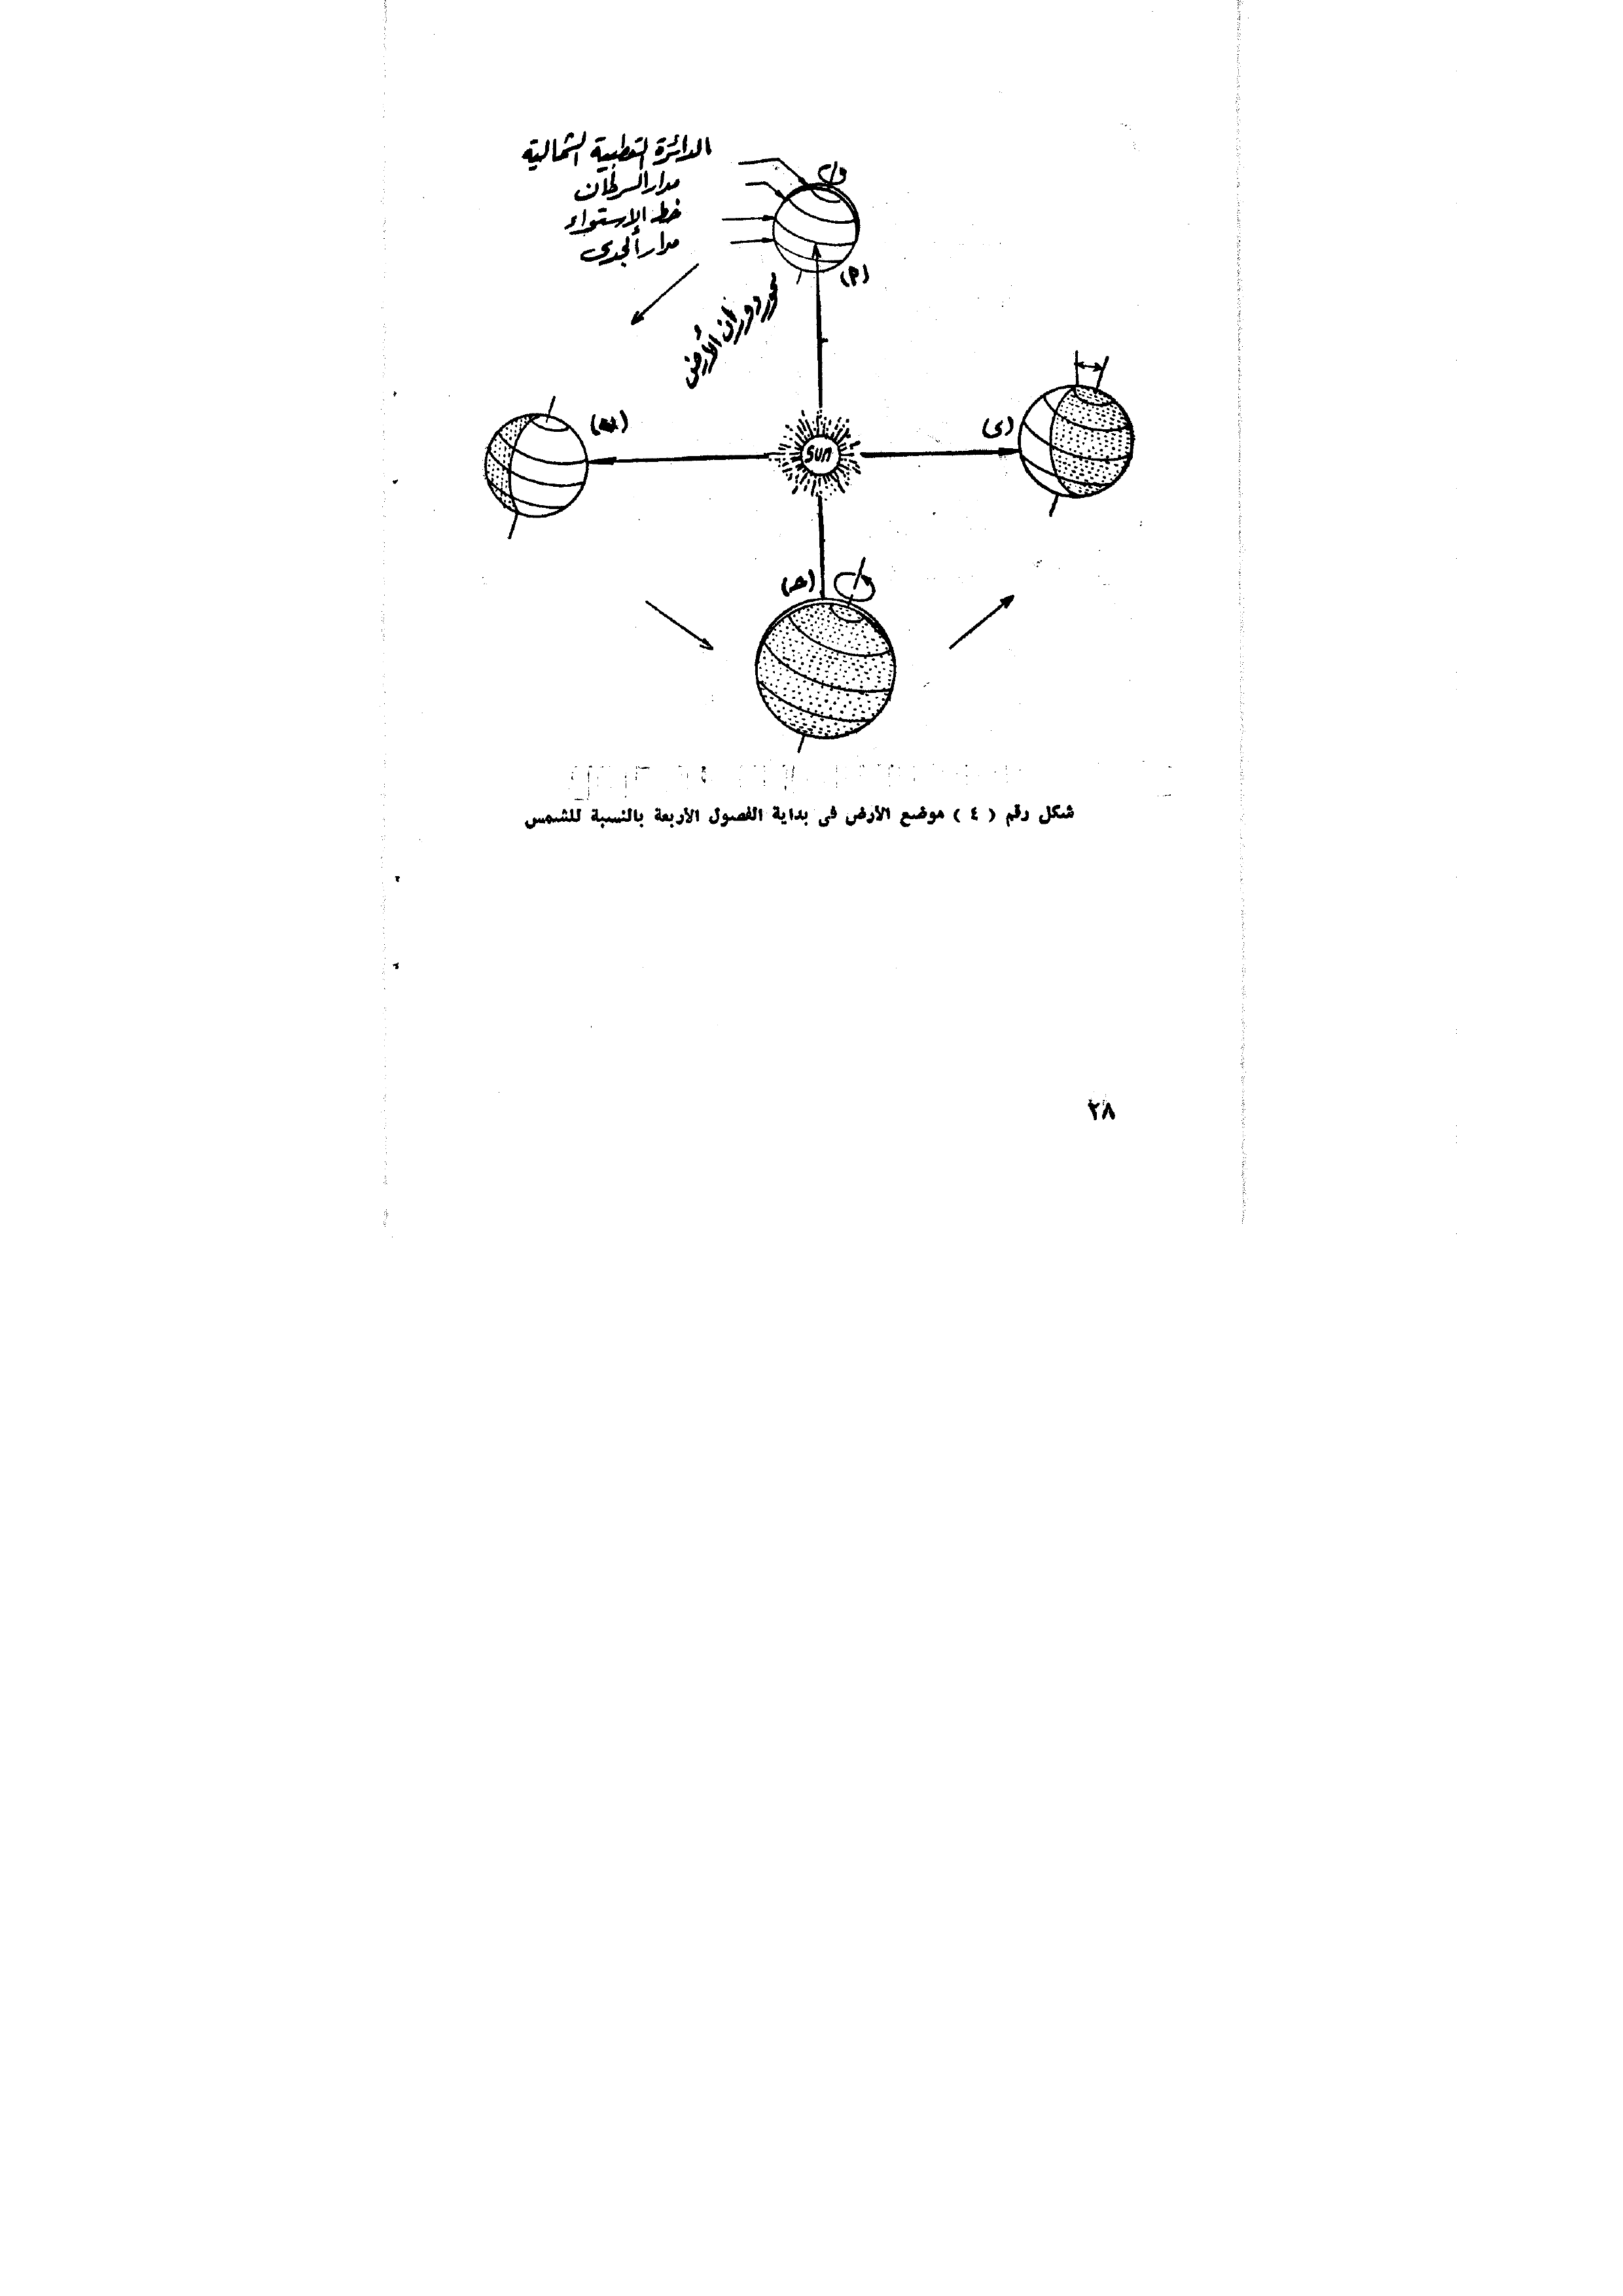 الدائرة القطبية الشمالية
مدار السرطان
خط الإستواء
مدار الجدى
محور دوران الأرض
(م)
(ى)
Sun
(حـ)
شكل رقم ( ٤ ) موضع الأرض فى بداية الفصول الأربعة بالنسبة للشمس
٢٨